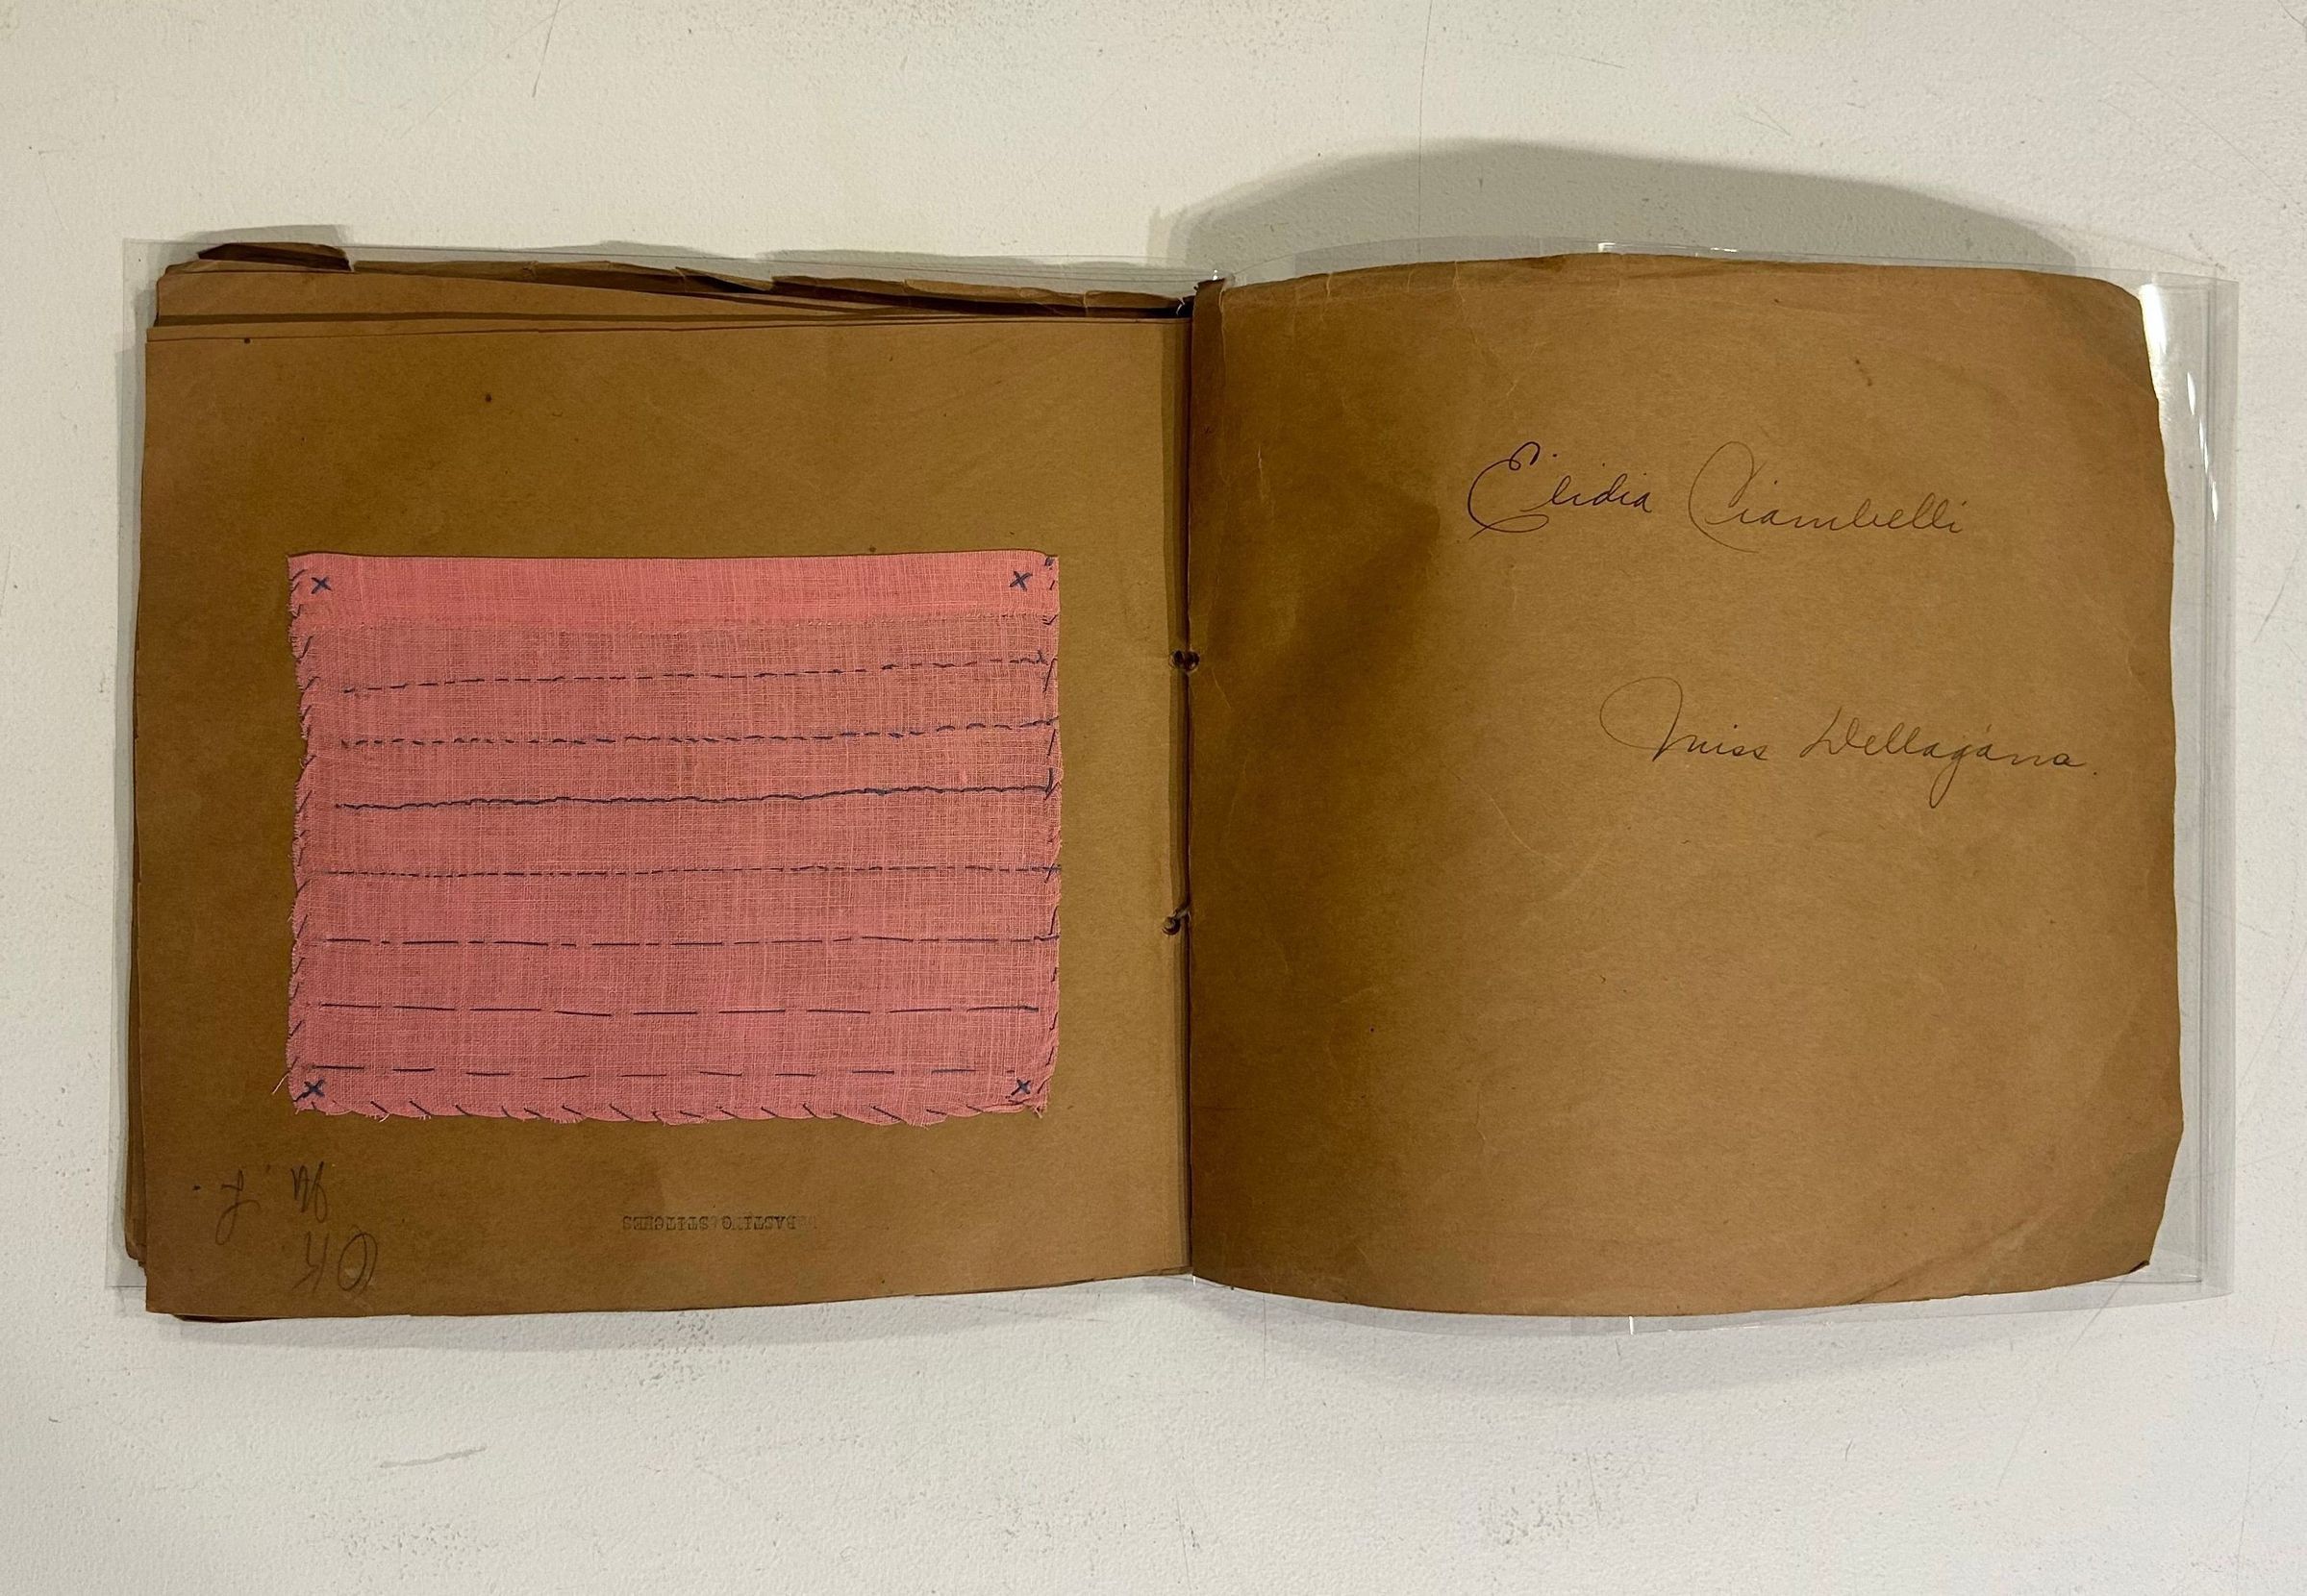 Elidia Ciambelli
Miss Dellagana.
BASTING STITCHES
OK